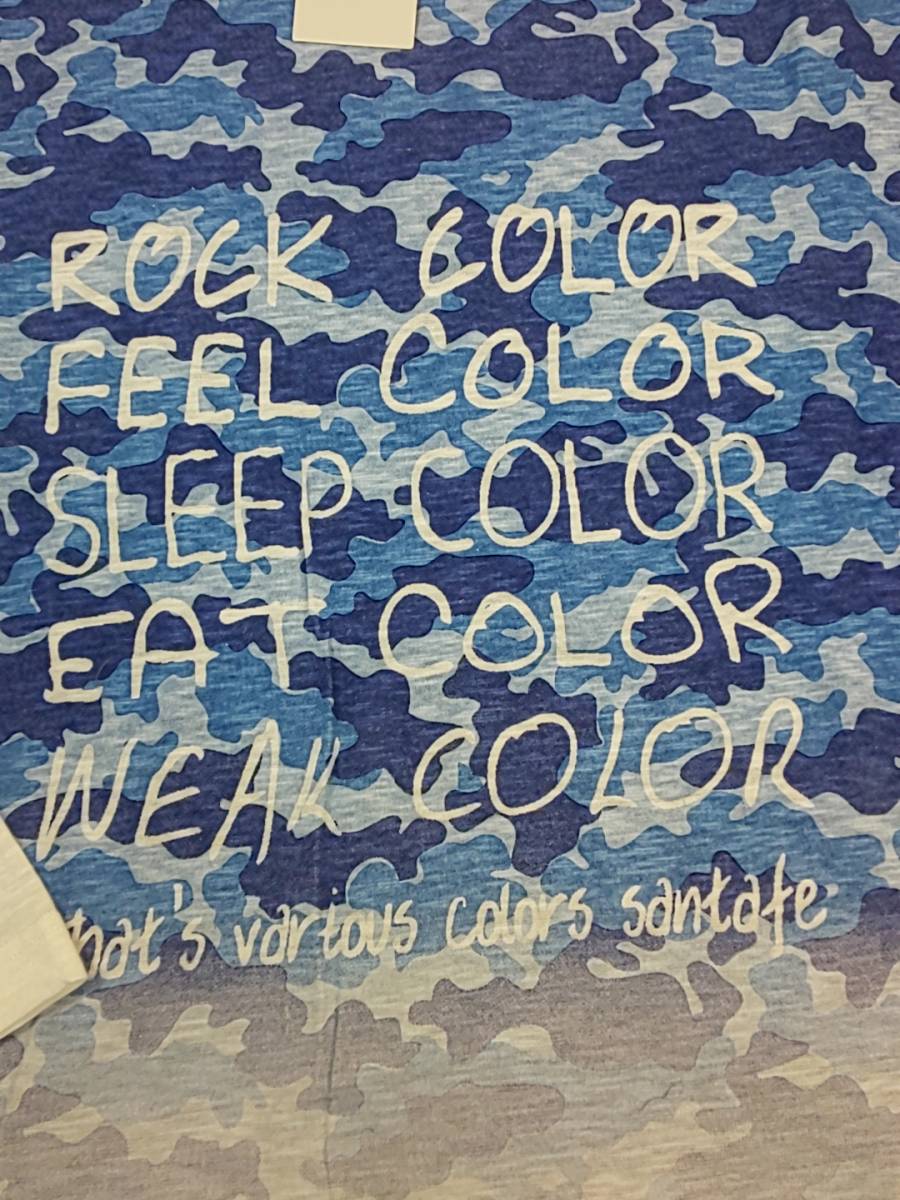 ROCK COLOR
FEEL COLOR
SLEEP COLOR
EAT COLOR
WEAK COLOR
that's various colors santafe